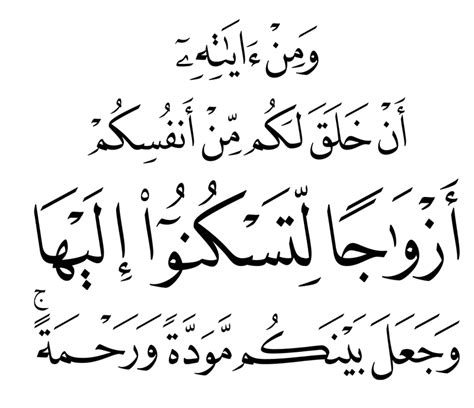 وَمِنْ ءَايَـٰتِهِۦٓ
أَنْ خَلَقَ لَكُم مِّنْ أَنفُسِكُمْ
أَزْوَٰجًا لِّتَسْكُنُوٓا۟ إِلَيْهَا
وَجَعَلَ بَيْنَكُم مَّوَدَّةً وَرَحْمَةً ۚ